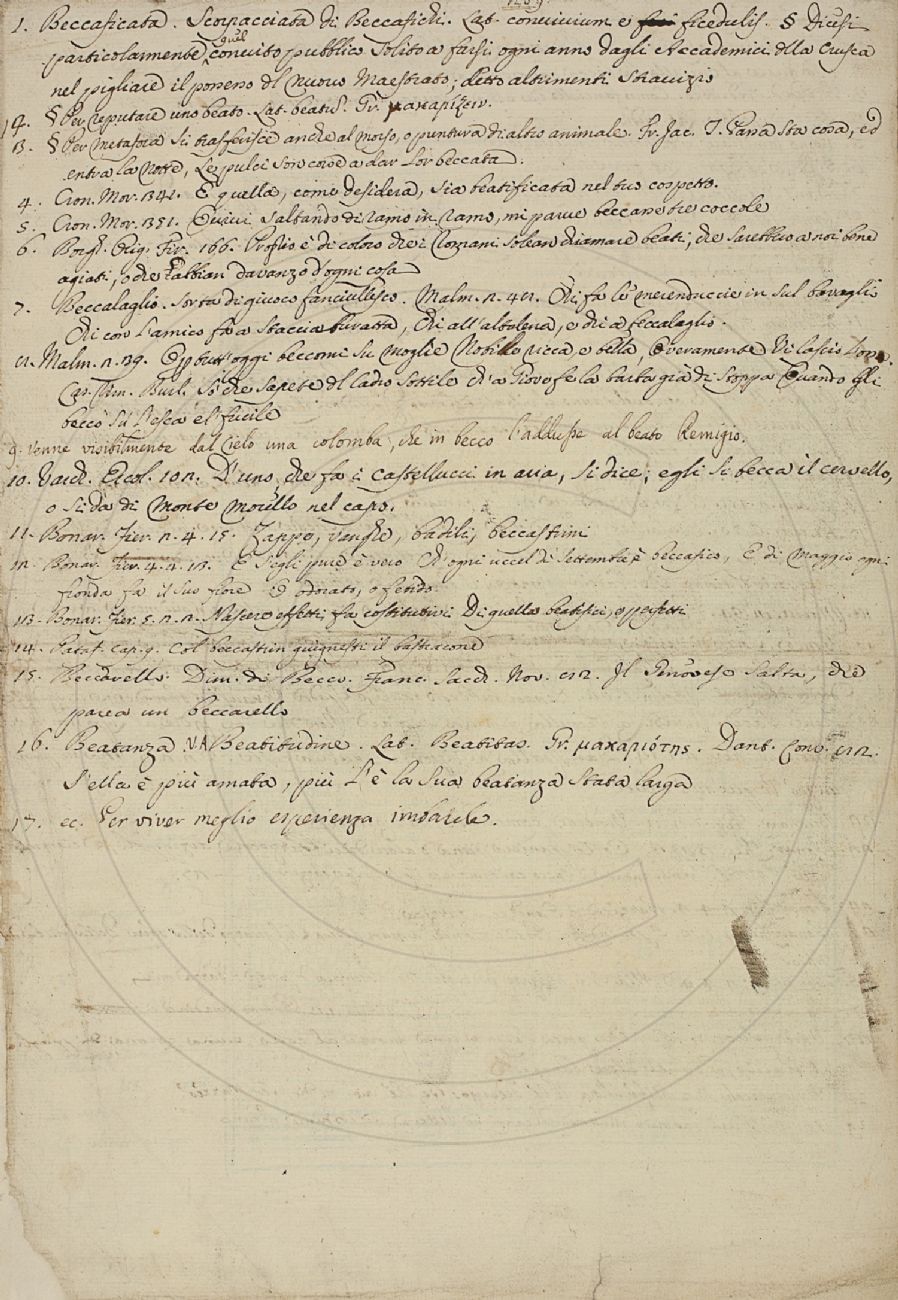 1. Beccaficata. Scorpacciata di Beccafichi. Lat. convivium e ficedulis. § Dicesi
particolarmente quel convito pubblico solito a farsi ogni anno dagli Accademici dlla Crusca
nel pigliare il possesso dl nuovo Maestrato; detto altrimenti Stravizio
12. § Per reputare uno beato. Lat. Gr. μακαρίζειν.
13. § Per metafora si trasferisce anche al morso, o puntura di altro animale. Fr. Jac. T. Pana sta cosa, ed
entra la notte, Le pulci son corse a dar lor beccata.
4. Cron. Mor. 342. E quella, come desidera, sia beatificata nel tuo cospetto.
5. Cron. Mor. 351. Quivi saltando di ramo in ramo, mi parve beccasse tre coccole
6. Borgh. Orig. Fir. 166. è di coloro che i Romani solean chiamare beati, che sarebbero a noi bene
agiati, o che abbian davanzo d'ogni cosa
7. Beccalaglio. Sorta di giuoco fanciullesco. Malm. 2. 48. Chi fa le merenduccie in sul bavaglio
Chi con l'amico fa a staccia buratta, Chi all'altalena, e chi a beccalaglio.
8. Malm. 2. 29. oggi beccomi su moglie Nobile ricca, e bella, Overamente vi lascio
Car. Mm. Burl. So che sapete dl ladro sottile Ch'a Giove fe la barba già di stoppa Quando gli
beccò su l'esca e 'l fucile
9. Venne visibilmente dal Cielo una colomba, che in becco l'addusse al beato Remigio.
10. Varch. Ercol. 102. D'uno, che fa i castellucci in aria, si dice; egli si becca il cervello,
o si dà di Monte Morello nel capo.
11. Bonar. Fier. 2. 4. 15. Zappe, vanghe, badili, beccastrini
12. Bonar. Fier. 4. 2. 18. E s'egli pure è vero Ch'ogni uccel di Settembre è beccafico, E di Maggio ogni
fronda fa il suo fiore O odorato, o fetido
13. Bonar. Fier. 5. 2. 2. Nascere effetti, fa costitutivi Di quella beatifici, o perfetti
14. Pataf. cap. 9. Col beccastrin
15. Beccarello. Dim. di Becco. Franc. Sacch. Nov. Il Genovese salta, che
parea un beccarello
16. Beatanza. VA Beatitudine. Lat. Beatitas. Gr. μακαριότης. Dant. Conv.
S'ella è più amata, più l'è la sua beatanza stata larga
17. ec. Per viver meglio esperienza imbarche.